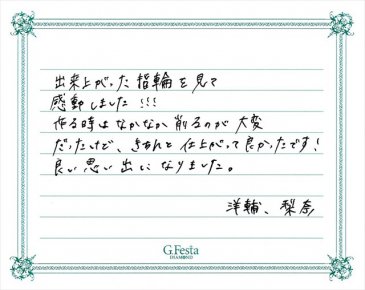 出来上がった指輪を見て
感動しました!!!
作る時はなかなか削るのが大変
だったけど、きちんと仕上がって良かったです!
良い思い出になりました。
洋輔、梨奈
G.Festa
DIAMOND